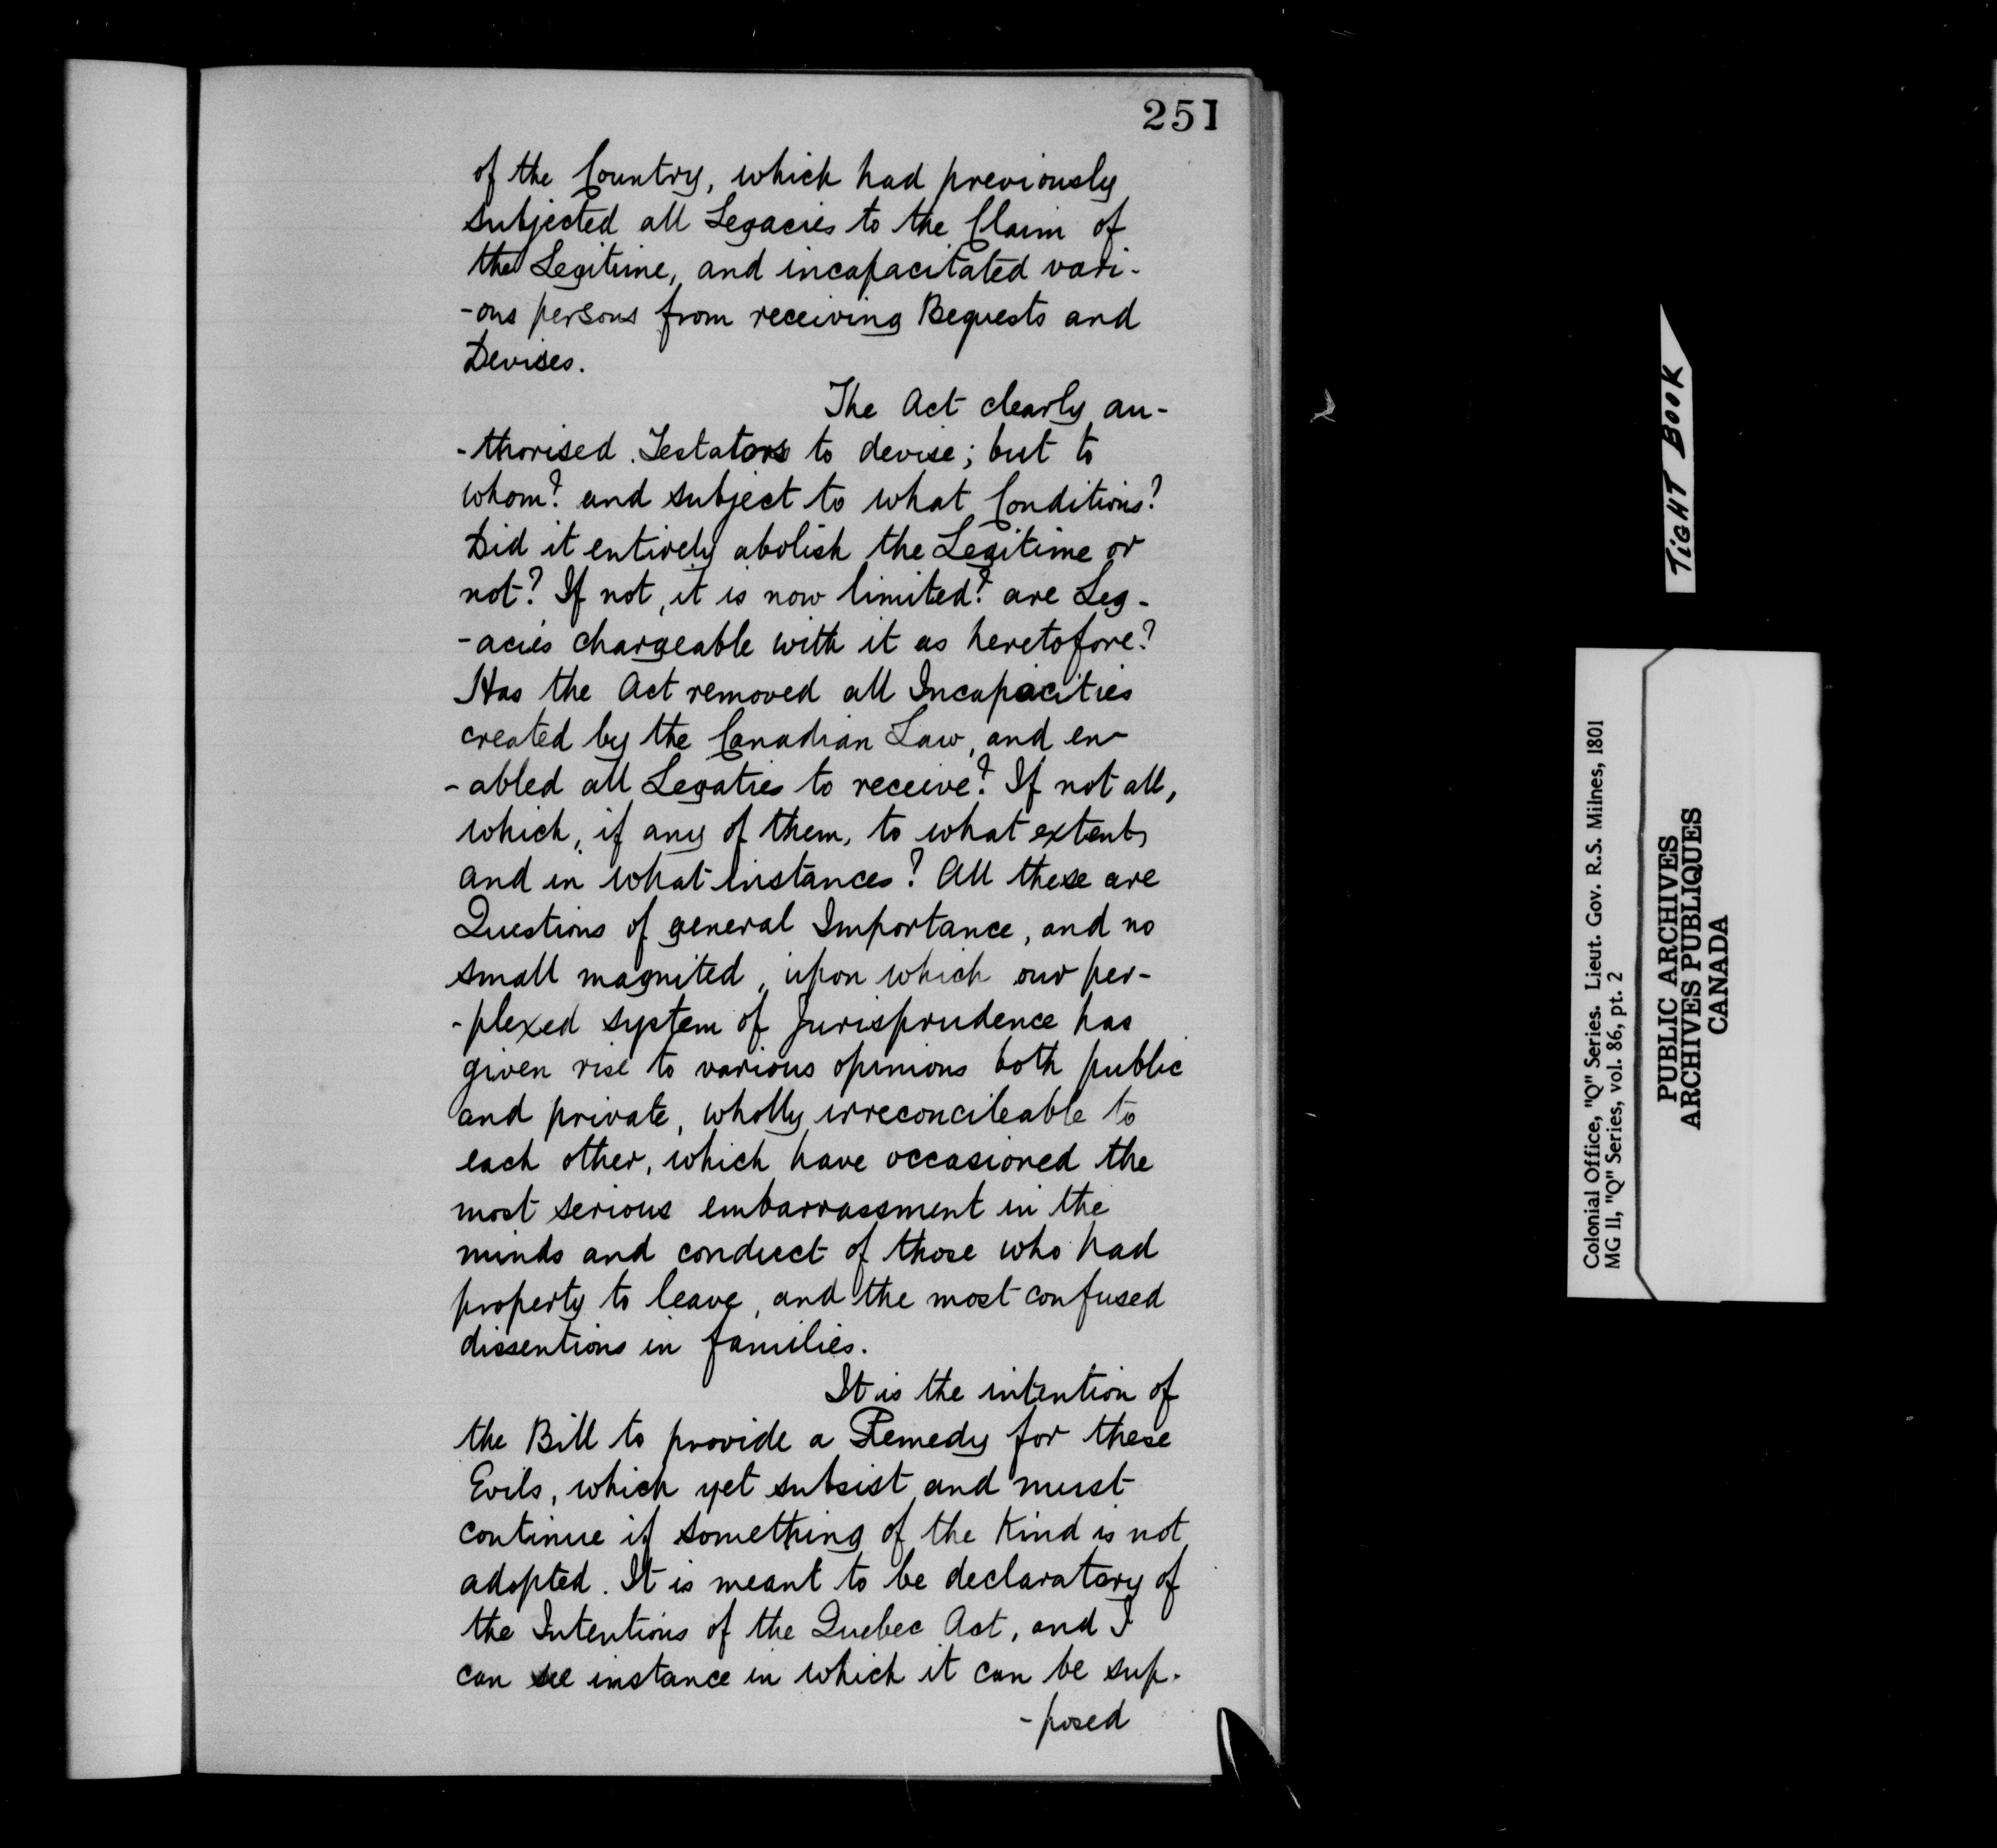 251
of the Country, which had previously
subjected all Legacies to the Claim of
the Legitime, and incapacitated vari-
-ous persons from receiving Bequests and
Devises.
The Act clearly au-
-thorised Testators to devise; but to
whom? and subject to what Conditions?
Did it entirely abolish the Legitime or
not? If not, it is now limited? are Leg-
-acies chargeable with it as heretofore?
Has the Act removed all Incapacities
created by the Canadian Law, and en-
-abled all Legaties to receive? If not all,
which, if any of them, to what extent,
and in what instances? All these are
Questions of general Importance, and no
small magnited, upon which our per-
-plexed system of Jurisprudence has
given rise to various opinions both public
and private, wholly irreconcileable to
each other, which have occasioned the
most serious embarrassment in the
minds and conduct of those who had
property to leave, and the most confused
dissentions in families.
It is the intention of
the Bill to provide a Remedy for these
Evils, which yet subsist and must
continue if something of the Kind is not
adopted. It is meant to be declaratory of
the Intentions of the Quebec Act, and I
can see instance in which it can be sup-
-posed
TIGHT BOOK
Colonial Office, "Q" Series. Lieut. Gov. R.S. Milnes, 1801
MG 11, "Q" Series, vol. 86, pt. 2
PUBLIC ARCHIVES
ARCHIVES PUBLIQUES
CANADA